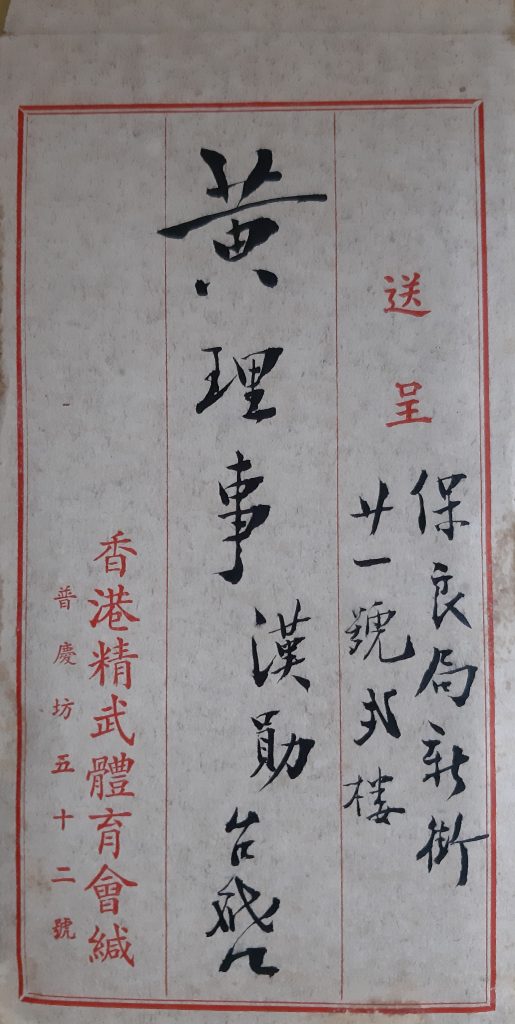 送呈
保良局新街
廿一號弍樓
黃理事漢勛台啓
香港精武體育會緘
普慶坊五十二號